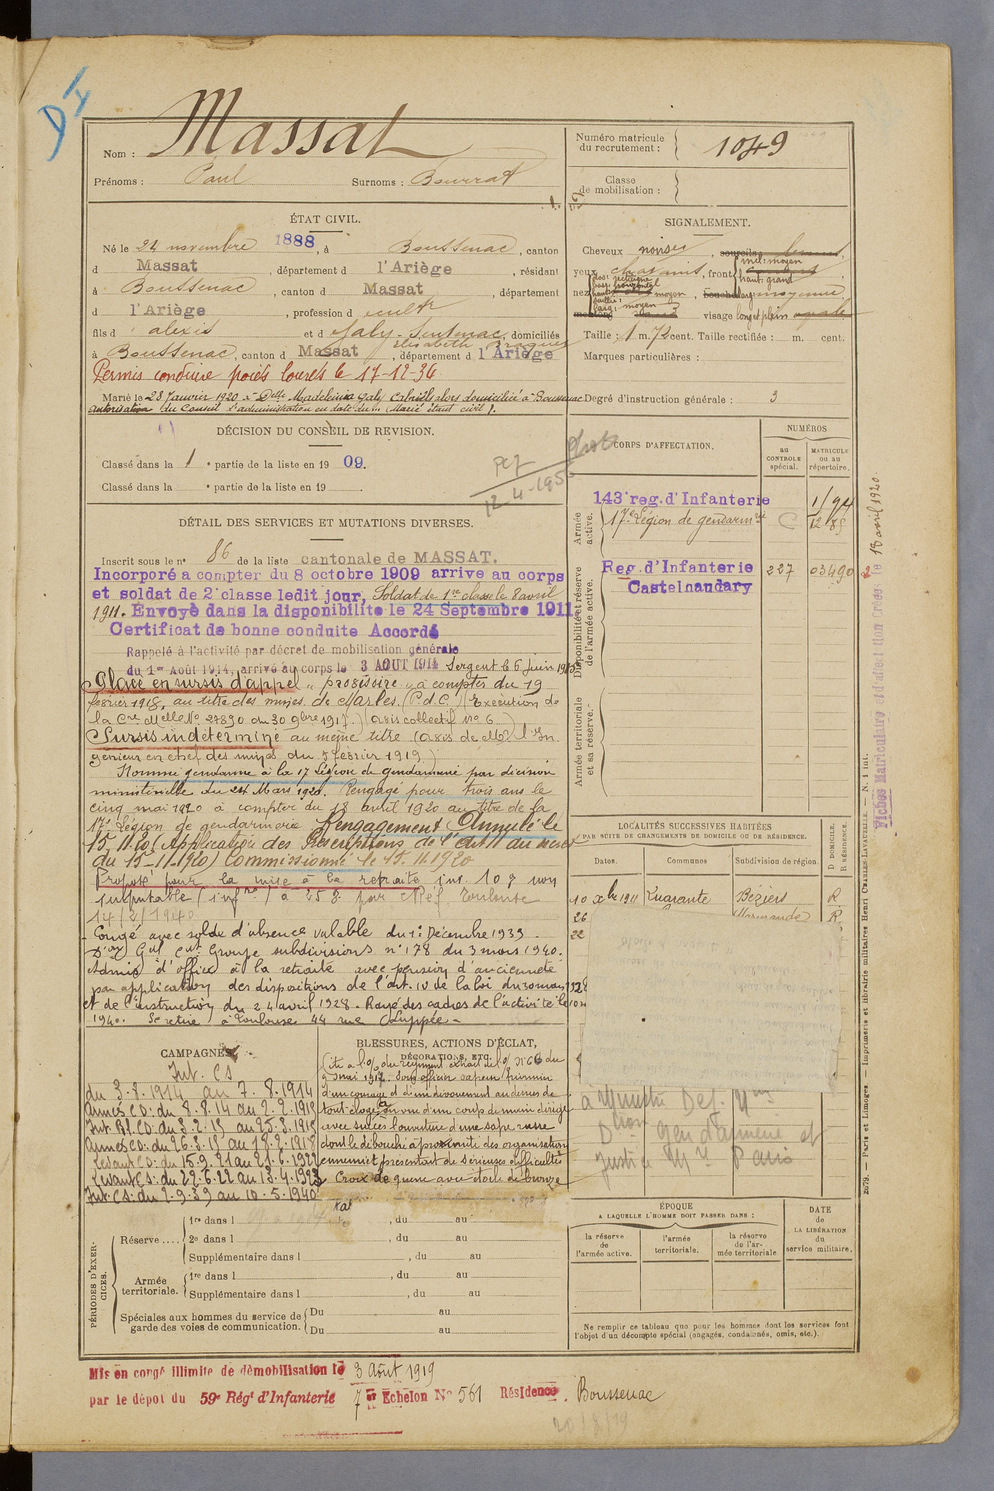 DI
Nom : Massat
Prénoms : Paul Surnoms : Bourrat
Numéro matricule
du recrutement : 1049
Classe
de mobilisation :
ÉTAT CIVIL.
Né le 24 novembre 1888, à Boussenac, canton
d Massat, département d l'Ariège, résidant
à Boussenac, canton d Massat, département
d l'Ariège, profession d cultr
fils d alexis et d Galy-Sentenac, domiciliés
Elisabeth
à Boussenac, canton d Massat, département d l'Ariège
Permis conduire poids lourds le 17-12-36
Marié le 28 Janvier 1920 à Delle Madeleine Galy Cabrillé alors domiciliée à Boussenac
autorisation du Conseil d'administration en date du .. (Marié étant civil).
SIGNALEMENT.
Cheveux noirs, sourcils
yeux, front incl: moyen
haut: grand
nez moyen
visage long et plein
Taille : 1 m. 72 cent. Taille rectifiée : m. cent.
Marques particulières :
Degré d'instruction générale : 3
DÉCISION DU CONSEIL DE REVISION.
Classé dans la 1e partie de la liste en 1909.
Classé dans la e partie de la liste en 19
12-4-195
CORPS D'AFFECTATION.
NUMÉROS
au
CONTROLE
spécial.
MATRICULE
ou au
répertoire.
Armée
active.
143e reg. d'Infanterie
17e Légion de gendarmie
Disponibilité et réserve
de l'armée active.
Reg. d'Infanterie 227 03490
Castelnaudary
Armée territoriale
et sa réserve.
DÉTAIL DES SERVICES ET MUTATIONS DIVERSES.
Inscrit sous le n° 86 de la liste cantonale de MASSAT.
Incorporé a compter du 8 octobre 1909 arrive au corps
et soldat de 2e classe ledit jour, Soldat de 1re classe le 8 avril
1911. Envoyé dans la disponibilité le 24 Septembre 1911
Certificat de bonne conduite Accordé
Rappelé à l'activité par décret de mobilisation générale
du 1er Août 1914, arrivé au corps le 3 AOUT 1914 Sergent le 6 juin
Placé en sursis d'appel " provisoire " à compter du 19
février 1918, au titre des mines de Marles. (P.d.C.) (Exécution de
la Cre Melle No 27890 du 30 9bre 1917) (avis collectif No 6
Sursis indéterminé au même titre (avis de Mr l'In-
génieur en chef des mines du 5 février 1919.)
Nommé gendarme à la 17e Légion de gendarmerie par décision
ministérielle du 24 Mars 1920. Rengagé pour trois ans le
cinq mai 1920 à compter du 18 avril 1920 au titre de la
17e Légion de gendarmerie Rengagement Annulé le
15.11.20 (Application des Prescriptions de l'art 11 du décret
du 15-11.1920) Commissionné le 15.11.1920
Proposé pour la mise à la retraite
14/2/1940
Congé avec solde d'absence valable du 1er Décembre 1939.
Don Gal Ct Groupe subdivisions n° 178 du 3 mars 1940.
Admis d'office à la retraite avec pension d'ancienneté
par application des dispositions de l'art. IV de la loi du 30 mars 1928
et de l'instruction du 24 avril 1928 - Rayé des cadres de l'activité le 10 m
1940. Se retire à Toulouse 44 rue
LOCALITÉS SUCCESSIVES HABITÉES
PAR SUITE DE CHANGEMENTS DE DOMICILE OU DE RÉSIDENCE.
Dates. Communes Subdivision de région. D DOMICILE. R RÉSIDENCE.
10 Xbre 1911 Quarante Béziers R
26 Marmande R
22
CAMPAGNES.
Int. CS
du 3.8.1914 au 7.8.1914
Armées CD: du 8.8.14 au 2.2.1915
Levant CD: du 15.9.21 au 21.6.1922
Levant CS: du 22.6.22 au 13.4.1923
Int. CS: du 2.9.39 au 10.5.1940
BLESSURES, ACTIONS D'ÉCLAT,
DÉCORATIONS, ETC.
Cité à l'o/ du régiment extrait de l'o/ No 66 du
mai 1917. Sous officier sapeur pionnier
d'un courage et d'un dévouement au dessus de
tout éloge. En vue d'un coup de main dirigé
avec succès l'ouverture d'une sape russe
dont le débouché à proximité des organisations
ennemies présentait de sérieuses difficultés
Croix de guerre avec étoile de bronze
à Ministre Def. Nle
Don gendarmerie et
justice Mre Paris
PÉRIODES D'EXERCICES.
Réserve .... 1re dans l , du au
2e dans l , du au
Supplémentaire dans l , du au
Armée
territoriale. 1re dans l , du au
Supplémentaire dans l , du au
Spéciales aux hommes du service de
garde des voies de communication. Du au
Du au
ÉPOQUE
A LAQUELLE L'HOMME DOIT PASSER DANS :
la réserve
de
l'armée active.
l'armée
territoriale.
la réserve
de l'ar-
mée territoriale
DATE
de
LA LIBÉRATION
du
service militaire.
Ne remplir ce tableau que pour les hommes dont les services font
l'objet d'un décompte spécial (engagés, condamnés, omis, etc.).
Mis en congé illimité de démobilisation le 3 Août 1919
par le dépot du 59e Régt d'Infanterie 7 Echelon No 561 Résidence. Boussenac
20/8/19
Fiches Matriculaire et d'affectation créées le 13 avril 1920.
2079. — Paris et Limoges. — Imprimerie et librairie militaires Henri CHARLES-LAVAUZELLE. — N. 1 int.